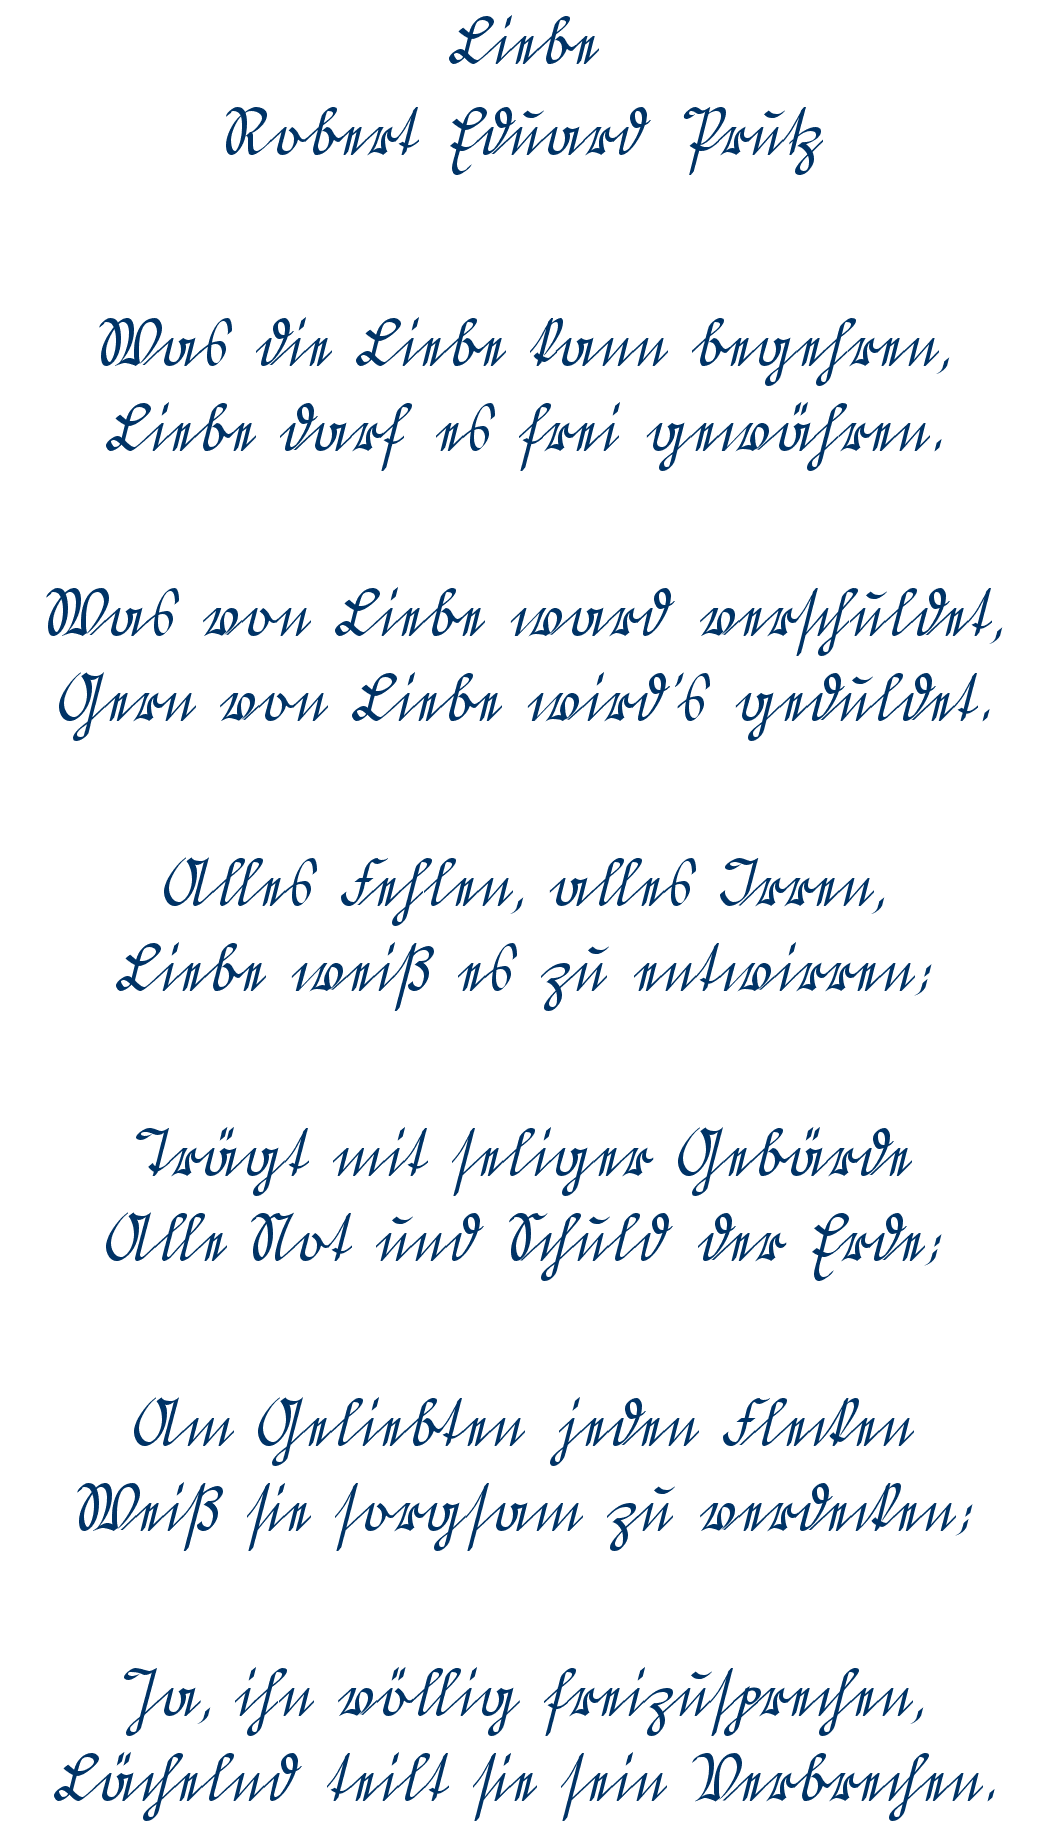 Liebe
Robert Eduard Prutz
Was die Liebe kann begehren,
Liebe darf es frei gewähren.
Was von Liebe ward verschuldet,
Gern von Liebe wird's geduldet.
Alles Fehlen, alles Irren,
Liebe weiß es zu entwirren;
Trägt mit seliger Gebärde
Alle Not und Schuld der Erde;
Am Geliebten jeden Flecken
Weiß sie sorgsam zu verdecken;
Ja, ihn völlig freizusprechen,
Lächelnd teilt sie sein Verbrechen.